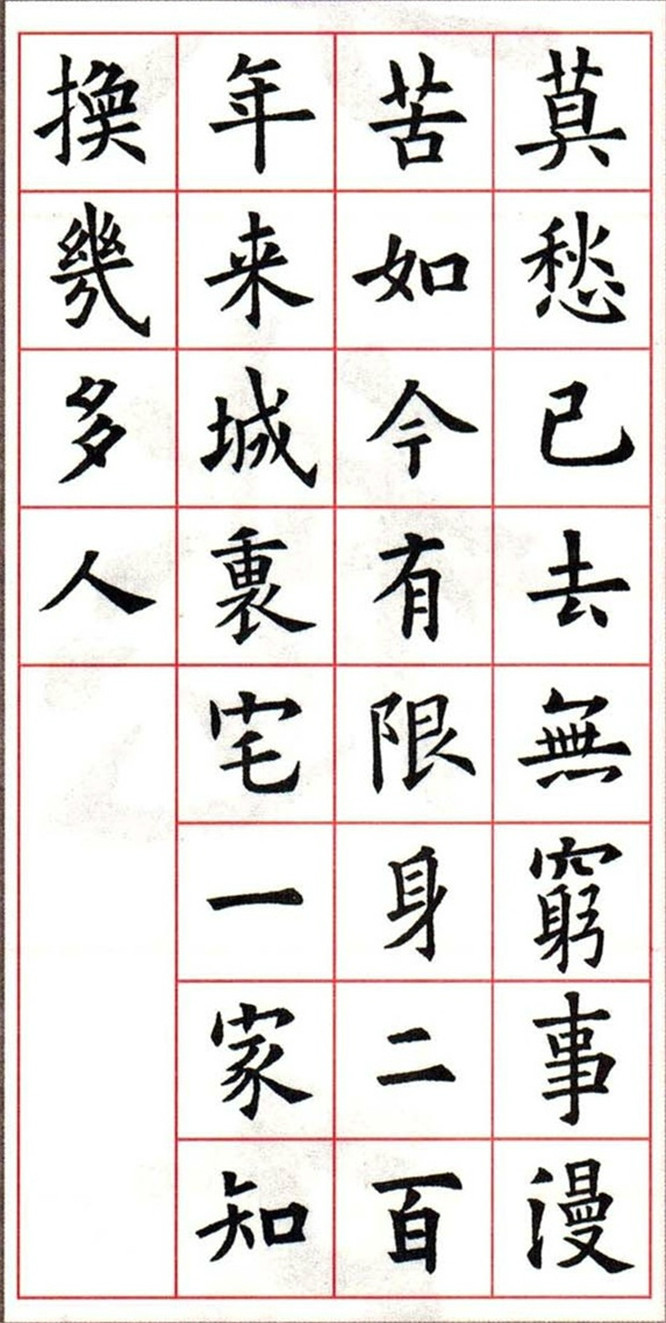 莫愁已去無窮事漫
苦如今有限身二百
年来城裏宅一家知
換幾多人